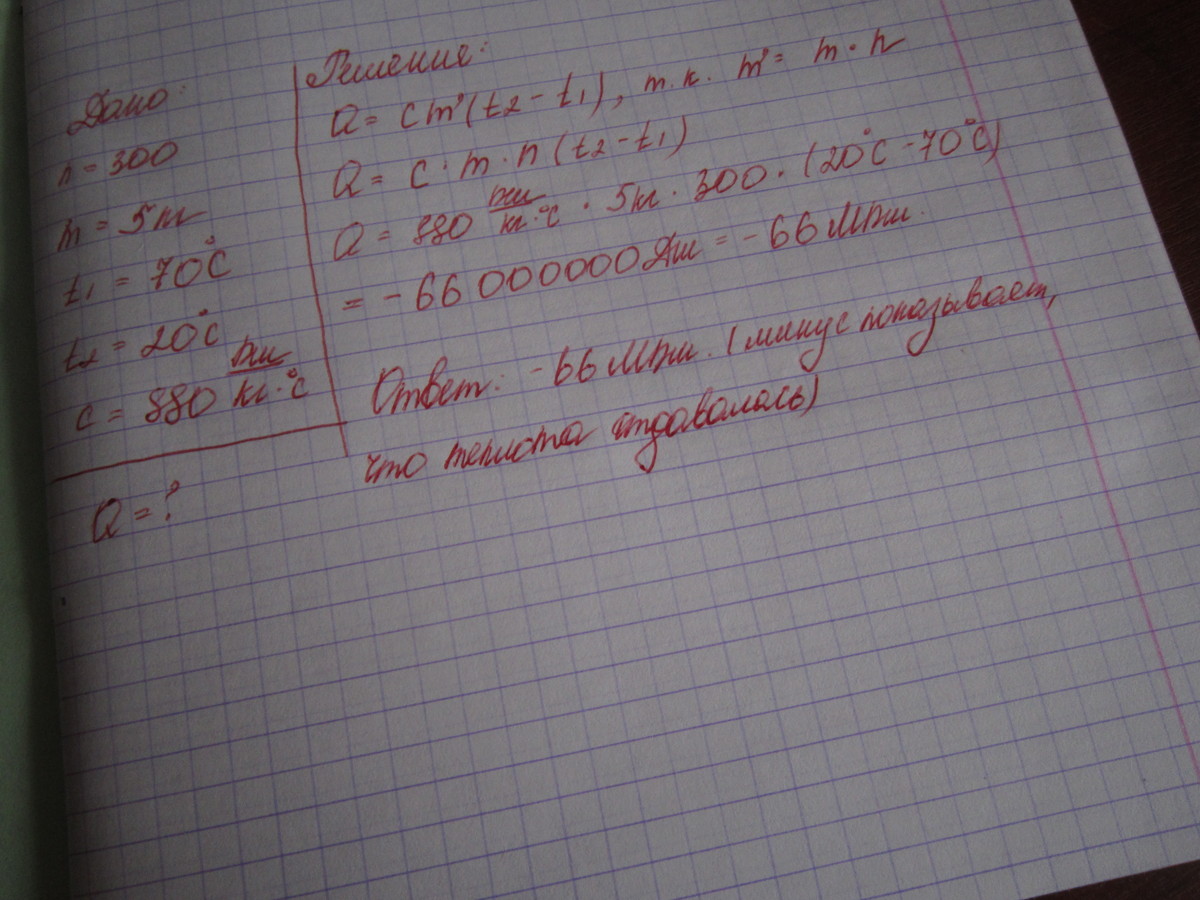 Дано:
n = 300
m = 5 кг
t₁ = 70°C
t₂ = 20°C
c = 880 Дж/кг·°C
Q = ?
Решение:
Q = cm'(t₂ - t₁), т.к. m' = m · n
Q = c · m · n (t₂ - t₁)
Q = 880 Дж/кг·°C · 5кг · 300 · (20°C - 70°C)
= - 66 000000 Дж = - 66 МДж.
Ответ: - 66 МДж. (минус показывает,
что теплота отдавалась)